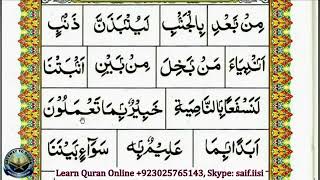 مِنْۢ بَعْدِ بِالْجَنْۢبِ لَيُنْۢبَذَنَّ ذَنْۢبٍ
اَنْۢبِيَآءَ مَنْۢ بَخِلَ مِنْۢ بَيْنِ اَنْۢبَتْنَا
لَنَسْفَعًۢا بِالنَّاصِيَةِ خَبِيْرٌۢ بِمَا تَعْمَلُوْنَ
اَبَدًۢا بِمَا عَلِيْمٌۢ بِهٖ سَوَآءٍۢ بَيْنَنَا
Learn Quran Online +923025765143, Skype: saif.iisi